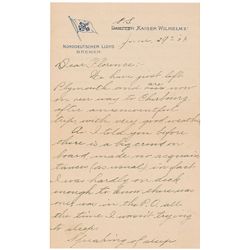 NORDDEUTSCHER LLOYD
BREMEN
DAMPFER "KAISER WILHELM II"
June 29th 03
Dear Florence:-
We have just left
Plymouth and are now
on our way to Cherbourg
after an uneventful
trip with very good weather.
As I told you before
there is a big crowd on
board, made no acquain-
tances (as usual) in fact
I was hardly on deck
enough to know there was
one, was in the P.O. all
the time I wasn't trying
to sleep.
Speaking of sleep